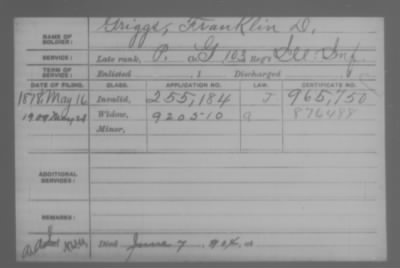 NAME OF SOLDIER: Griggs, Franklin D.
SERVICE: Late rank, P. Co. G 103 Reg't Ill. Inf.
TERM OF SERVICE: Enlisted , 1 Discharged
DATE OF FILING. CLASS. APPLICATION NO. LAW. CERTIFICATE NO.
May 16 Invalid, 255,184 J 965,750
Widow, 920510 876488
Minor,
ADDITIONAL SERVICES:
REMARKS:
Died June 7 , at